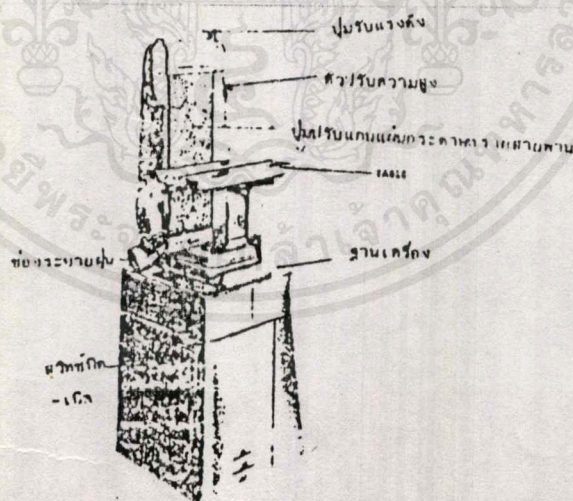 ปุ่มรับแรงดึง
ตัวปรับความสูง
ปุ่มปรับแกนแผ่นกระดาษทรายสายพาน
TABLE
ท่อระบายฝุ่น
ฐานเครื่อง
สวิทซ์ปิด
-เปิด